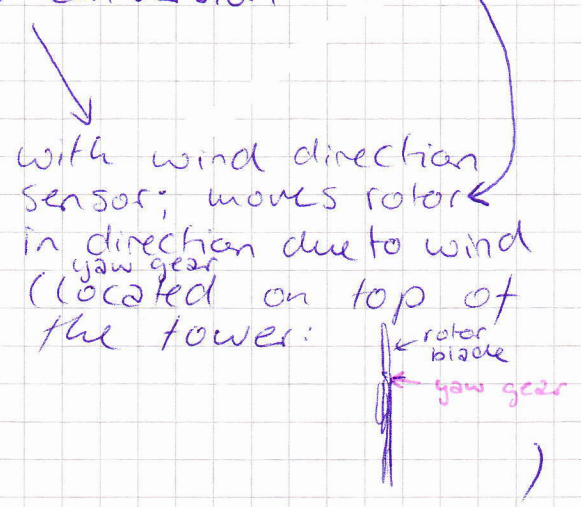 with wind direction
sensor; moves rotor
in direction due to wind
yaw gear
(located on top of
the tower:
rotor
blade
yaw gear
)